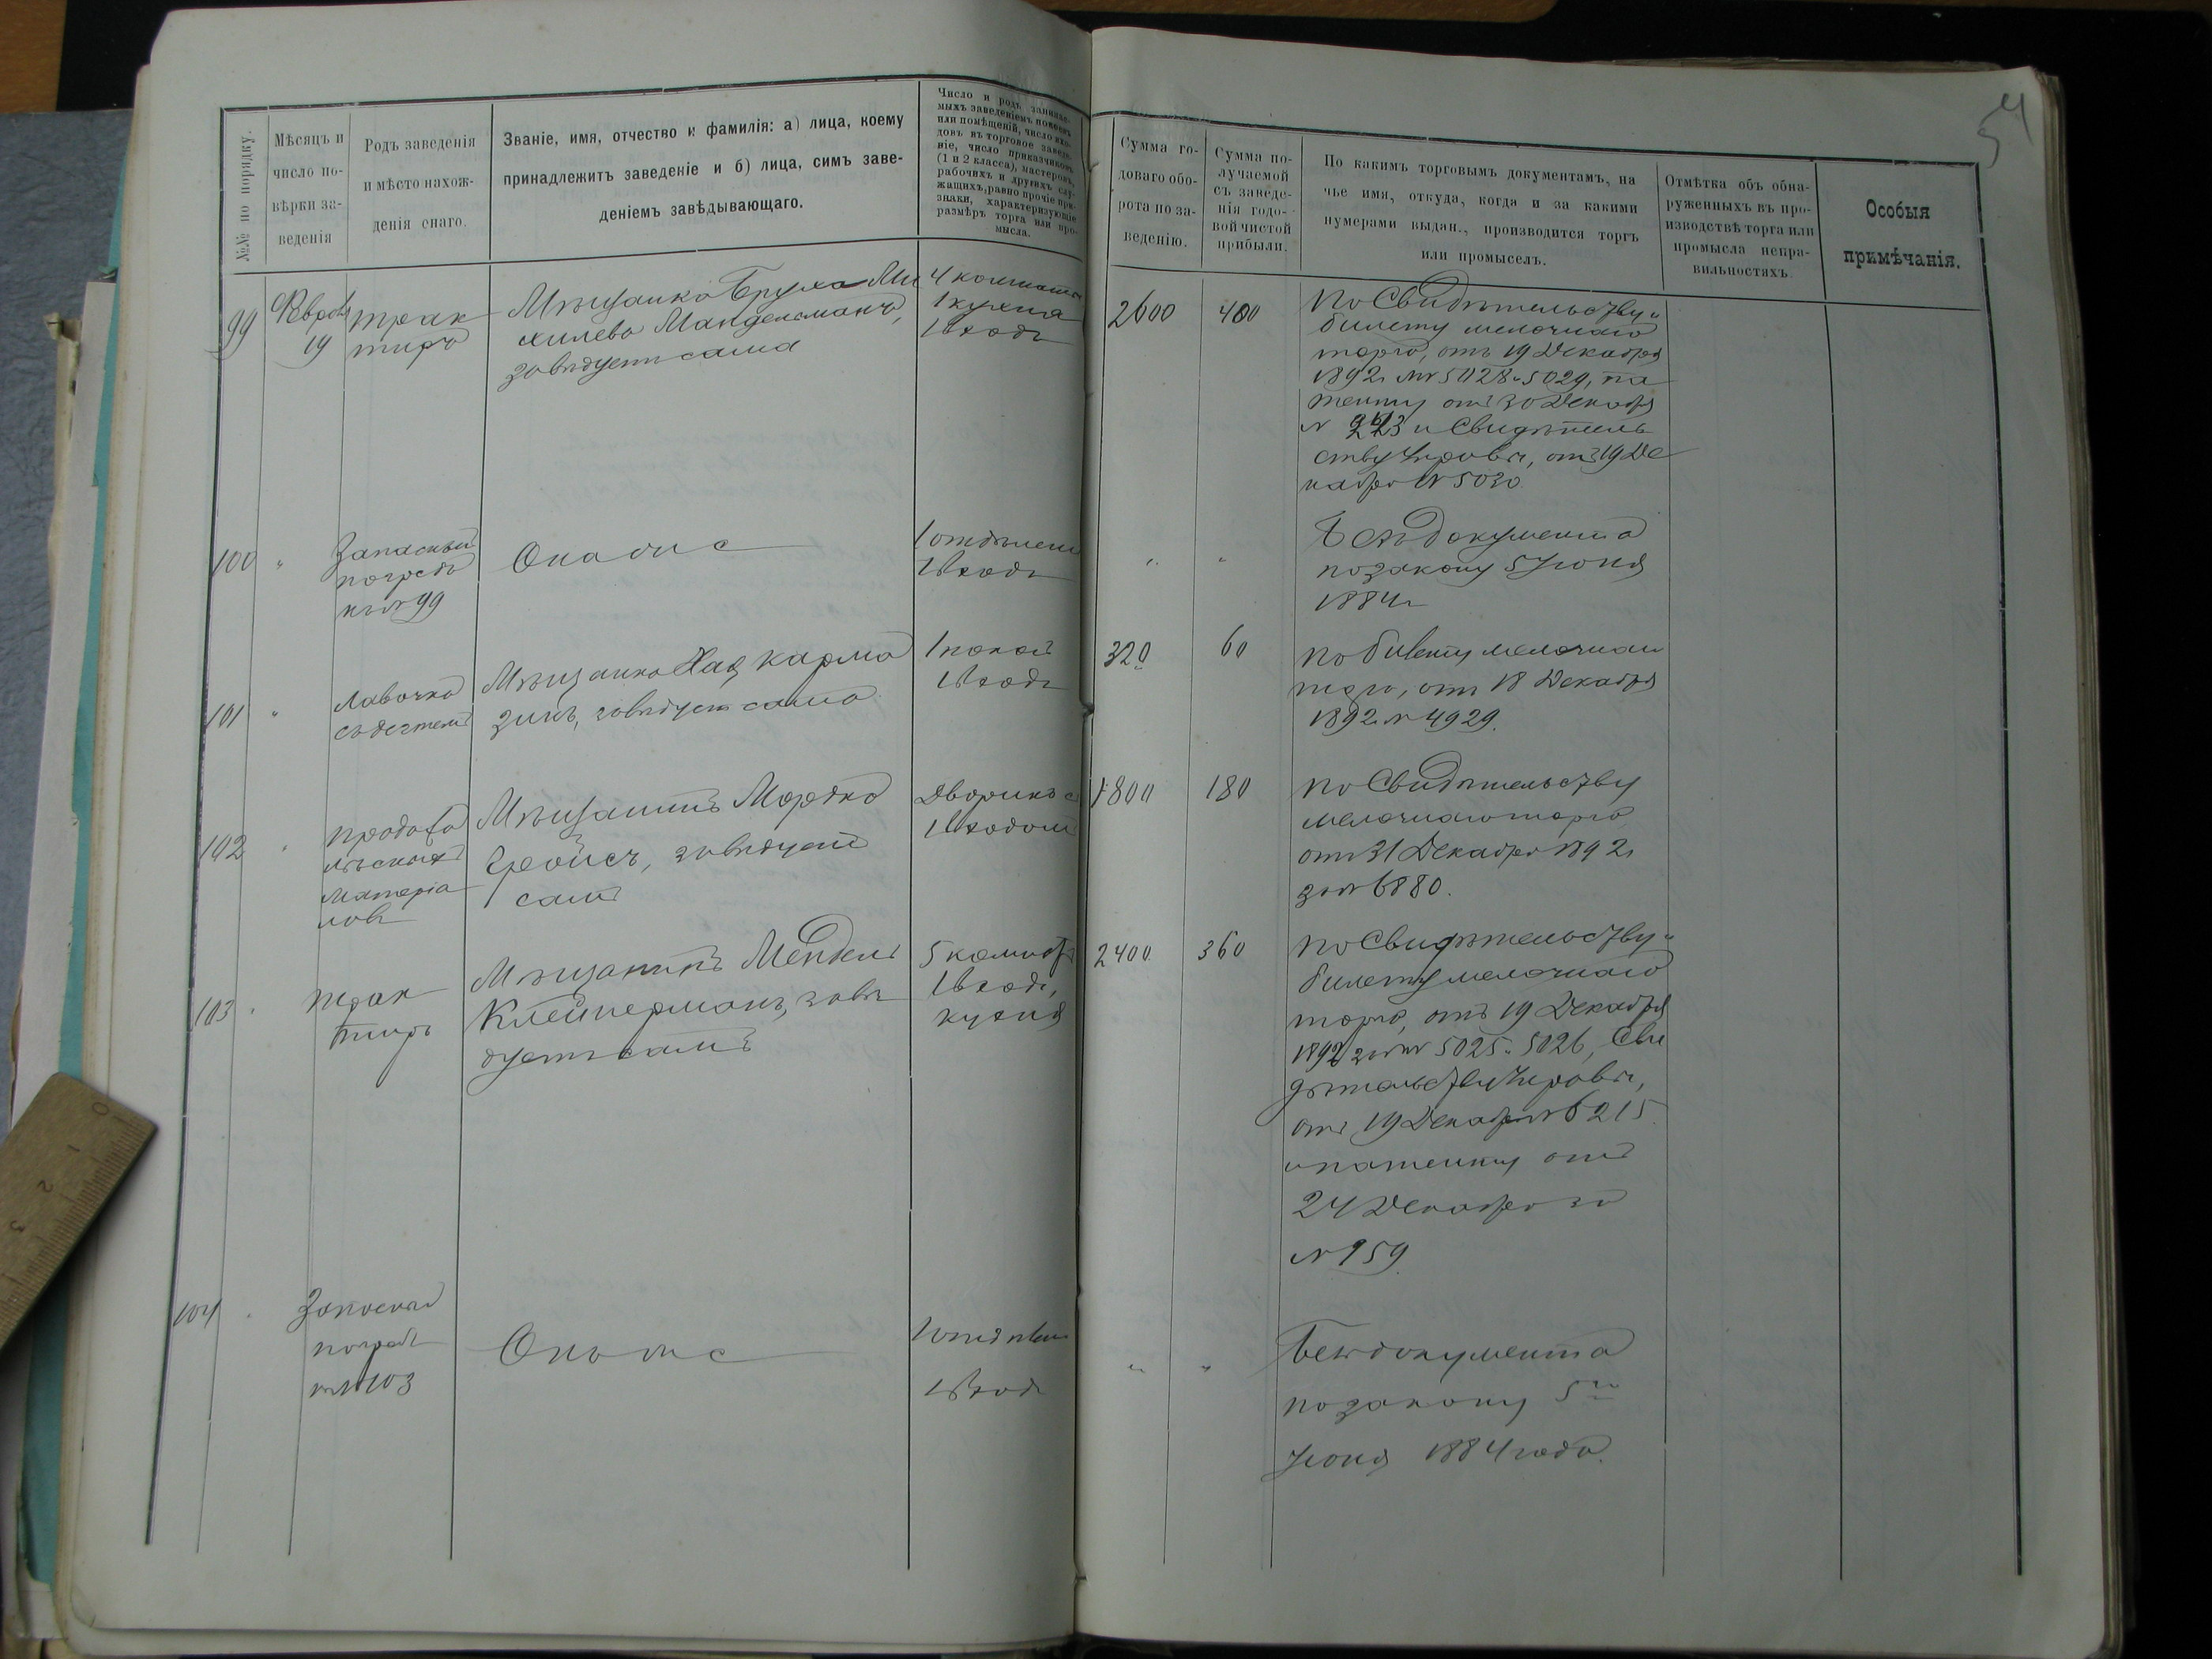 54
№№ по порядку.
Мѣсяцъ и
число по-
вѣрки за-
веденія
Родъ заведенія
и мѣсто нахож-
денія онаго.
Званіе, имя, отчество и фамилія: а) лица, коему
принадлежитъ заведеніе и б) лица, симъ заве-
деніемъ завѣдывающаго.
Число и родъ занимае-
мыхъ заведеніемъ покоевъ
или помѣщеній, число вхо-
довъ въ торговое заведе-
ніе, число приказчиковъ
(1 и 2 класса), мастеровъ,
рабочихъ и другихъ слу-
жащихъ, равно прочіе при-
знаки, характеризующіе
размѣръ торга или про-
мысла.
Сумма го-
доваго обо-
рота по за-
веденію.
Сумма по-
лучаемой
съ заведе-
нія годо-
вой чистой
прибыли.
По какимъ торговымъ документамъ, на
чье имя, откуда, когда и за какими
нумерами выдан., производится торгъ
или промыселъ.
Отмѣтка объ обна-
руженныхъ въ про-
изводствѣ торга или
промысла непра-
вильностяхъ
Особыя
примѣчанія.
99
Февраля
19
трак
тиръ
Мѣщанка Бруха Ми
хилева Мандельсманъ,
завѣдуетъ сама
4 комнаты
1 кухня
1 входъ
2600
400
По Свидѣтельству и
билету мелочнаго
торга, отъ 19 Декабря
1892 г. №№ 5028 и 5029, па
тенту отъ 30 Декабря
и Свидѣтель
ству Управы, отъ 19 Де
кабря № 5030.
100
"
Запасный
погребъ
къ № 99
Она же
1 отдѣлен
1 входъ
"
"
Безъ документа
по закону 5 Іюня
1884 г.
101
"
Лавочка
съ дегтемъ
Мѣщанка Хая Карма
зинъ, завѣдуетъ сама
1 покой
1 входъ
320
60
По билету мелочнаго
торга, отъ 18 Декабря
1892 г. № 4929.
102
"
продажа
лѣсныхъ
матеріа
ловъ
Мѣщанинъ Мордко
завѣдуетъ
самъ
Дворикъ съ
1 входомъ
1800
180
По Свидѣтельству
мелочнаго торга
отъ 31 Декабря 1892 г.
за № 6880.
103
"
трак
тиръ
Мѣщанинъ Мендель
Клейнерманъ, завѣ
дуетъ самъ
5 комнатъ
1 входъ,
кухня
2400
360
По Свидѣтельству и
билету мелочнаго
торга, отъ 19 Декабря
1892 за №№ 5025 и 5026, Сви
дѣтельству Управы,
отъ 19 Декабря № 6215
и патенту отъ
24 Декабря за
№ 959.
104
"
Запасный
погребъ
къ № 103
Она же
1 отдѣлен
1 входъ
"
"
Безъ документа
по закону 5го
Іюня 1884 года.
0
1
2
3